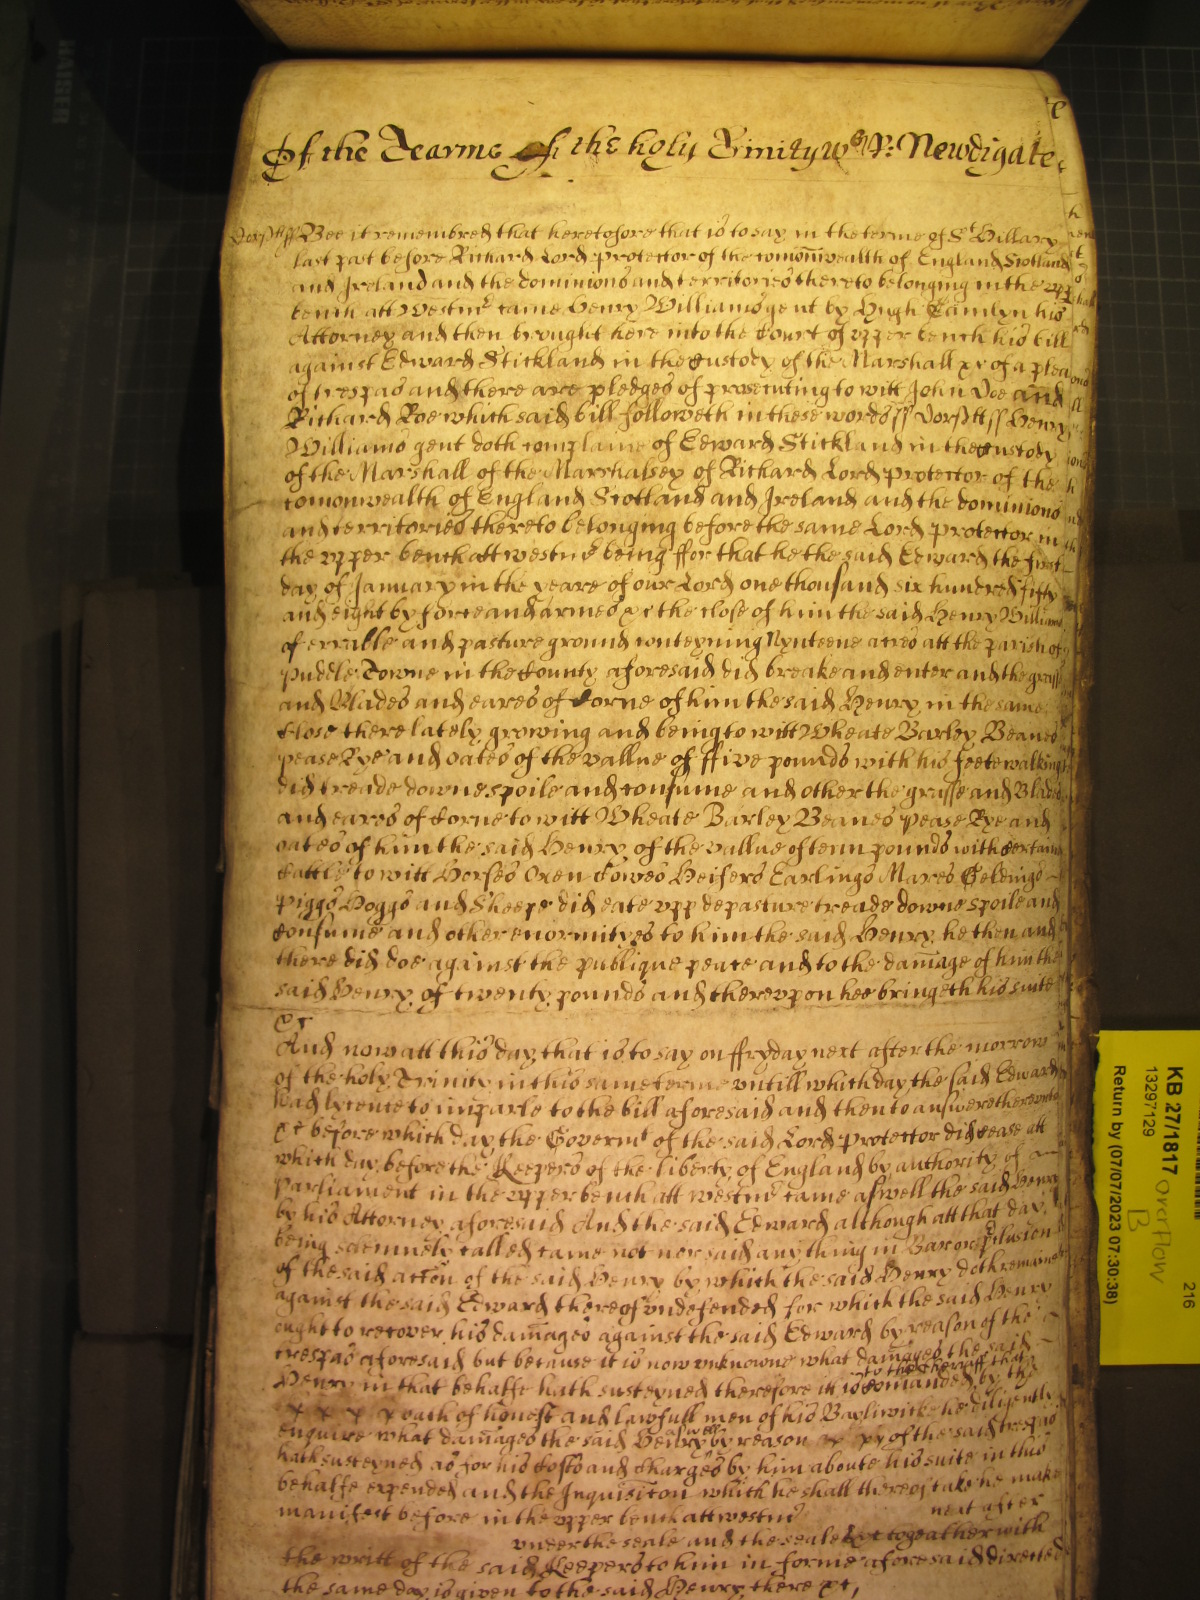 Of the Tearme of the holy Trinity w R: Newdigate
Dorstt ss Bee it remembred that heretofore that is to say in the terme of St Hillary
last past before Richard Lord protector of the comonwealth of England Scotland
and Ireland and the dominions and territories thereto belonging in the upp
bench att Westmr came Henry Williams gent by Hugh Camlyn his
Attorney and then brought here into the Court of upper bench his bill
against Edward Stickland in the Custody of the Marshall &c of a plea
of trespas and there are pledges of prosecuting to witt John Doe and
Richard Roe which said bill followeth in these words ss Dorstt ss Henry
Williams gent doth complaine of Edward Stickland in the Custody
of the Marshall of the Marshalsey of Richard Lord protector of the
comonwealth of England Scotland and Ireland and the dominions
and territories thereto belonging before the same Lord protector in
the upper bench att westmr being ffor that he the said Edward the first
day of January in the yeare of our Lord one thousand six hundred fifty
and eight by force and armes &c the close of him the said Henry Williams
of errable and pasture ground conteyning Nynteene acres att the parish of
puddle Towne in the County aforesaid did breake and enter and the grasse
and Blades and eares of Corne of him the said Henry in the same
Close there lately growing and being to witt Wheate Barley Beanes
pease Rye and oates of the vallue of ffive pounds with his feete walking
did treade downe spoile and consume and other the grasse and Blades
and eares of Corne to witt Wheate Barley Beanes pease Rye and
oates of him the said Henry of the vallue of tenn pounds with Certaine
Cattle to witt Horses Oxen Cowes Heifers Earlings Mares Geldings
piggs Hoggs and Sheepe did eate upp depasture treade downe spoile and
Consume and other enormityes to him the said Henry he then and
there did doe against the publique peace and to the damage of him the
said Henry of twenty pounds and thereupon hee bringeth his suite
&c
And now att this day that is to say on ffryday next after the morrow
of the holy Trinity in this same terme untill which day the said Edward
had lycence to imparle to the bill aforesaid and then to answere thereunto
&c before which day the Governmt of the said Lord protector did cease att
which day before the Keepers of the liberty of England by authority of
parliament in the upper bench att westmr came aswell the said Henry
by his Attorney aforesaid And the said Edward although att that day
being solemnely called came not nor said any thing in Bar or preclusion
of the said accon of the said Henry by which the said Henry doth remaine
against the said Edward thereof undefended for which the said Henry
ought to recover his damages against the said Edward by reason of the
trespas aforesaid but because it is now unknowne what damages the said
to the sherriff that
Henry in that behalfe hath susteyned therefore itt is Comanded by the
oath of honest and lawfull men of his Bayliwicke he diligently
aswell
enquire what damages the said Henry by reason &c of the said trespas
hath susteyned as for his Costs and Charges by him about his suite in this
behalfe expended and the Inquisicon which he shall thereof take he make
manifest before in the upper bench att westmr next after
under the seale and the seales &c togeather with
the writt of the said Keepers to him in forme aforesaid directed
the same day is given to the said Henry there &c,
KAISER
KB 27/1817
13297129
overflow
B
216
Return by (07/07/2023 07:30:38)